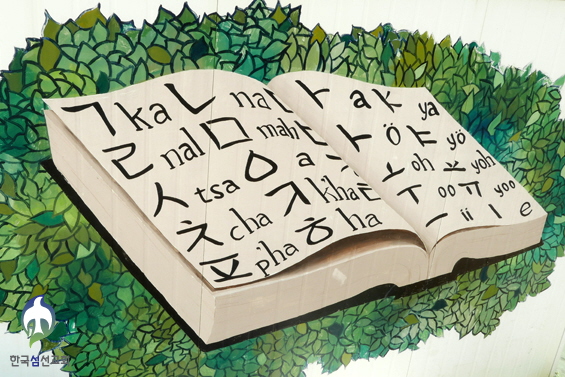 ㄱ ka ㄴ na
ㄹ nal ㅁ mah
ㅅ tsa ㅇ a
ㅊ cha ㅋ kha ㅌ
ㅍ pha ㅎ ha
ㅏ a ㅑ ya
ㅏ ö ㅑ yö
ㅗ oh ㅛ yoh
ㅜ oo ㅠ yoo
ㅡ ii ㅣ e
한국섬선교회